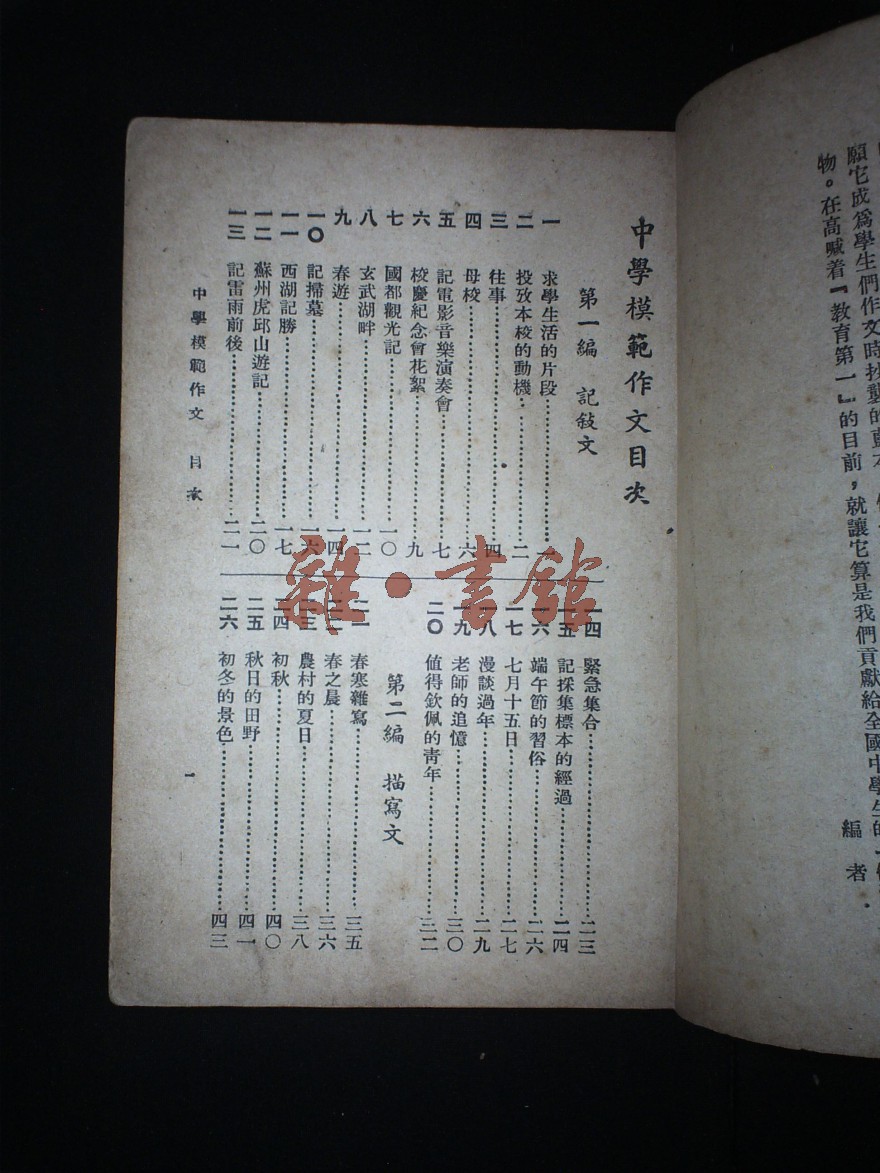 願它成爲學生們作文時抄襲的藍本
物。在高喊着『教育第一』的目前，就讓它算是我們貢獻給全國中學生的一
編者
中學模範作文目次
第一編 記敍文
一 求學生活的片段 一
二 投攷本校的動機 二
三 往事 四
四 母校 六
五 記電影音樂演奏會 七
六 校慶紀念會花絮 九
七 國都觀光記 一〇
八 玄武湖畔 一二
九 春遊 一四
一〇 記掃墓 一六
一一 西湖記勝 一七
一二 蘇州虎邱山遊記 二〇
一三 記雷雨前後 二一
一四 緊急集合 二三
一五 記採集標本的經過 二四
一六 端午節的習俗 二六
一七 七月十五日 二七
一八 漫談過年 二九
一九 老師的追憶 三〇
二〇 値得欽佩的靑年 三二
第二編 描寫文
二一 春寒雜寫 三五
二二 春之晨 三六
二三 農村的夏日 三八
二四 初秋 四〇
二五 秋日的田野 四一
二六 初冬的景色 四三
中學模範作文 目次
一
雜·書館